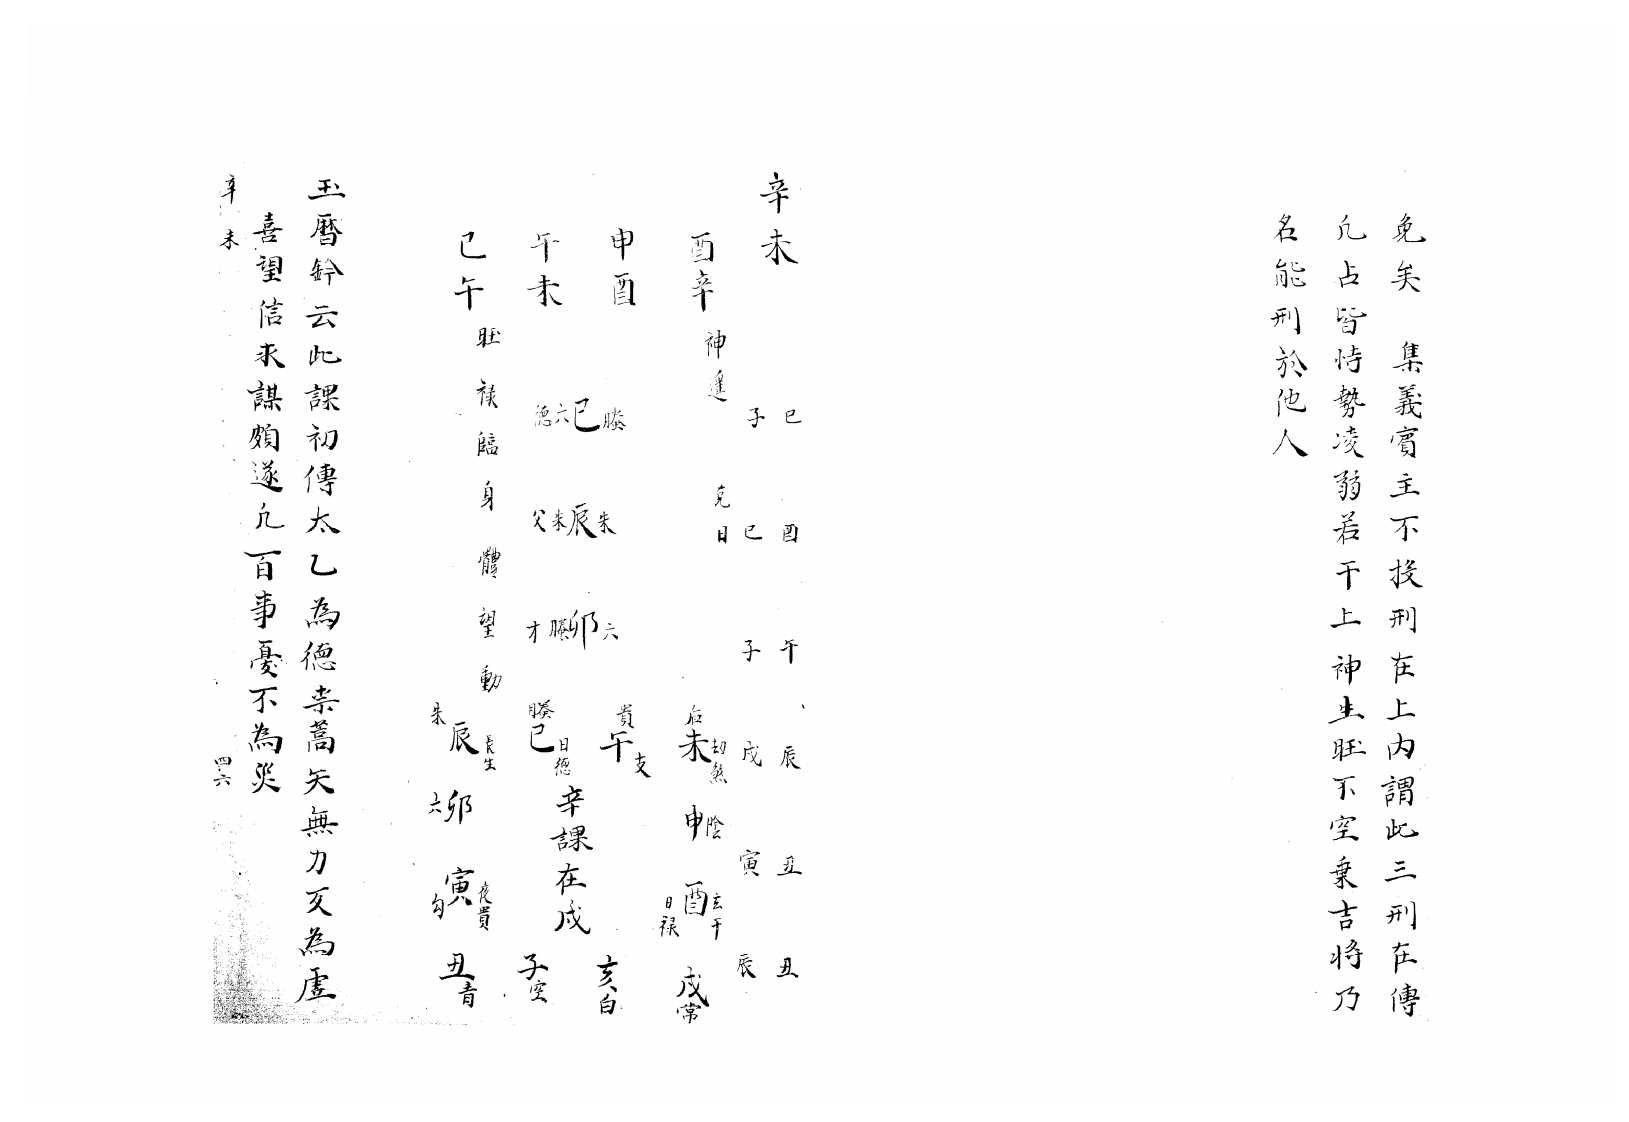 免矣　集義賓主不投刑在上内謂此三刑在傳
凡占皆恃勢凌弱若干上神生旺不空乗吉将乃
名能刑於他人
辛未
巳　酉　午　辰　丑　丑
子　巳　子　戌　寅　辰
克日
酉辛　神遥
申酉
午未
巳午　旺禄臨身體望動
螣巳六德
朱辰朱父
六卯螣才
后未劫煞
申陰
酉玄干日禄
戌常
貴午支
亥白
螣巳日德
辛課在戌
子空
朱辰長生
六卯
寅夜貴勾
丑青
玉曆鈐云此課初傳太乙為德柰蒿矢無力又為虛
喜望信求謀頗遂凡百事憂不為災
辛未
四六